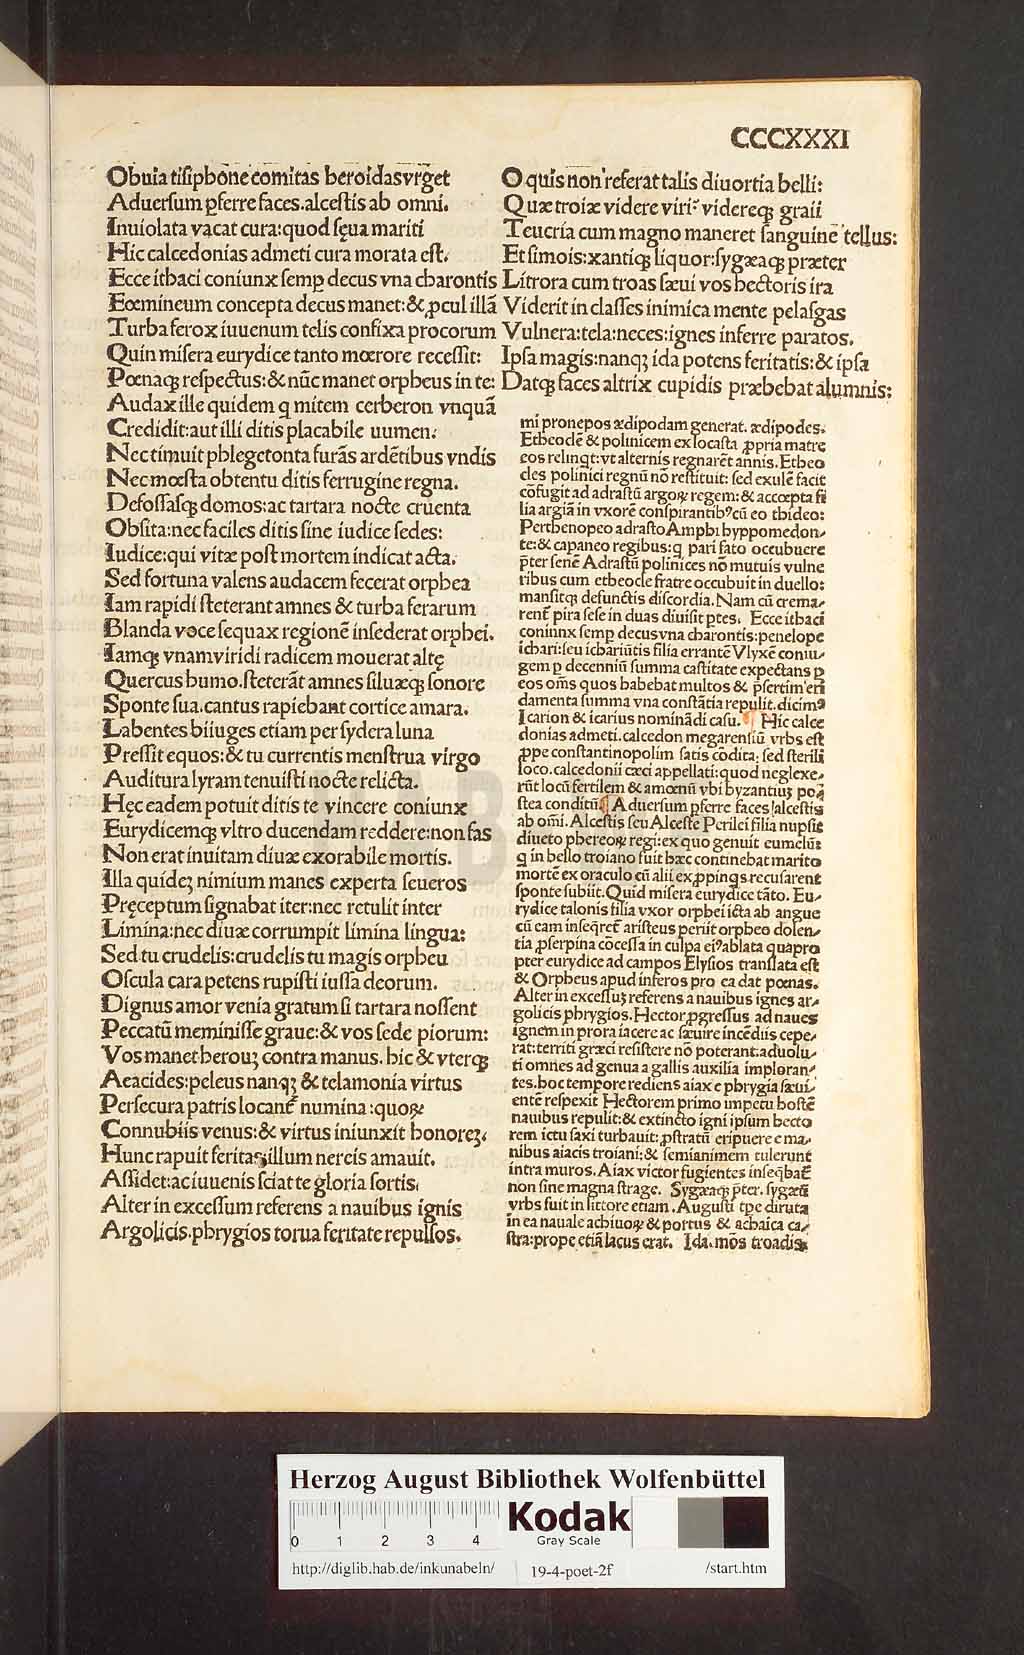 CCCXXXI
Obuia tisiphone comitas heroidas vrget
Aduersum ꝑferre faces. alcestis ab omni.
Inuiolata vacat cura: quod sęua mariti
Hic calcedonias admeti cura morata est.
Ecce ithaci coniunx semꝑ decus vna charontis
Fœmineum concepta decus manet: & ꝓcul illā
Turba ferox iuuenum telis confixa procorum
Quin misera eurydice tanto mœrore recessit:
Pœnaqꝫ respectus: & nūc manet orpheus in te:
Audax ille quidem q̇ mitem cerberon vnquā
Credidit: aut illi ditis placabile uumen:
Nec timuit phlegetonta furās ardētibus vndis
Nec mœsta obtentu ditis ferrugine regna.
Defossasqꝫ domos: ac tartara nocte cruenta
Obsita: nec faciles ditis sine iudice sedes:
Iudice: qui vitæ post mortem indicat acta.
Sed fortuna valens audacem fecerat orphea
Iam rapidi steterant amnes & turba ferarum
Blanda voce sequax regionē insederat orphei.
Iamqꝫ vnam viridi radicem mouerat altę
Quercus humo. steterāt amnes siluæqꝫ sonore
Sponte sua. cantus rapiebant cortice amara.
Labentes biiuges etiam per sydera luna
Pressit equos: & tu currentis menstrua virgo
Auditura lyram tenuisti nocte relicta.
Hęc eadem potuit ditis te vincere coniunx
Eurydicemqꝫ vltro ducendam reddere: non fas
Non erat inuitam diuæ exorabile mortis.
Illa quideꝫ nimium manes experta seueros
Pręceptum signabat iter: nec retulit inter
Limina: nec diuæ corrumpit limina lingua:
Sed tu crudelis: crudelis tu magis orpheu
Oscula cara petens rupisti iussa deorum.
Dignus amor venia gratum si tartara nossent
Peccatū meminisse graue: & vos sede piorum:
Vos manet herouꝫ contra manus. hic & vterqꝫ
Aeacides: peleus nanqꝫ & telamonia virtus
Persecura patris locantẽ numina: quoꝝ
Connubiis venus: & virtus iniunxit honoreꝫ.
Hunc rapuit feritas: illum nereis amauit.
Assidet: ac iuuenis sciat te gloria sortis.
Alter in excessum referens a nauibus ignis
Argolicis. phrygios torua feritate repulsos.
O quis non referat talis diuortia belli:
Quæ troiæ videre viri: videreqꝫ graii
Teucria cum magno maneret sanguine tellus:
Et simois: xantiqꝫ liquor: sygæaqꝫ præter
Litrora cum troas sæui vos hectoris ira
Viderit in classes inimica mente pelasgas
Vulnera: tela: neces: ignes inferre paratos.
Ipsa magis: nanqꝫ ida potens feritatis: & ipsa
Datqꝫ faces altrix cupidis præbebat alumnis:
mi pronepos ædipodam generat. ædipodes.
Etheoclē & polinicem ex Iocasta ꝓpria matre
eos relinqt: vt alternis regnarēt annis. Etheo
cles polinici regnū nō restituit: sed exulē facit
cōfugit ad adrastū argoꝝ regem: & accœpta fi
lia argiā in vxorē conspirantibꝰ cū eo thideo:
Perthenopeo adrasto Amphi hyppomedon-
te: & capaneo regibus: q pari fato occubuere
p̄ter senē Adrastū polinices nō mutuis vulne
ribus cum etheocle fratre occubuit in duello:
mansitqꝫ defunctis discordia. Nam cū crema-
rent̄ pira sese in duas diuisit ptes. Ecce ithaci
coniunx semp decus vna charontis: penelope
ichari: seu ichariūtis filia errantē Vlyxē coniu-
gem p decenniū summa castitate expectans p
eos om̄s quos habebat multos & p̄sertim eri
damenta summa vna constātia repulit. dicimꝰ
Icarion & icarius nominādi casu. ¶ Hic calce
donias admeti. calcedon megarensiū vrbs est
ꝓpe constantinopolim satis cōdita: sed sterili
loco. calcedonii cæci appellati: quod neglexe-
rūt locū fertilem & amœnū vbi byzantiuꝫ po
stea conditū ¶ Aduersum ꝑferre faces alcestis
ab om̄i. Alcestis seu Alceste Perilei filia nupsit
diueto phereoꝝ regi: ex quo genuit eumelū:
q in bello troiano fuit hæc continebat marito
mortē ex oraculo cū alii ex ꝓpinqs recusarent
sponte subiit. Quid misera eurydice tāto. Eu-
rydice talonis filia vxor orphei icta ab angue
cū eam inseqret̄ aristeus periit orpheo dolen-
tia ꝓserpina cōcessa in culpa eiꝰ ablata quapro
pter eurydice ad campos Elysios translata est
& Orpheus apud inferos pro ea dat pœnas.
Alter in excessuꝫ referens a nauibus ignes ar-
golicis phrygios. Hector ꝓgressus ad naues
ignem in prora iacere ac sæuire incēdiis cepe-
rat: territi græci resistere nō poterant: aduolu-
ti omnes ad genua a gallis auxilia imploran-
tes. hoc tempore rediens aiax e phrygia sæui-
entē respexit Hectorem primo impetu hostē
nauibus repulit: & extincto igni ipsum hecto
rem ictu saxi turbauit: ꝓstratū eripuere e ma-
nibus aiacis troiani: & semianimem tulerunt
intra muros. Aiax victor fugientes inseqbat̄
non sine magna strage. Sygæaqꝫ p̄ter. sygæū
vrbs fuit in littore etiam. Augusti tpe diruta
in ea nauale achiuoꝝ & portus & achaica ca-
stra: prope etiā lacus erat. Ida. mōs troadis
Herzog August Bibliothek Wolfenbüttel
0 1 2 3 4
Kodak
Gray Scale
http://diglib.hab.de/inkunabeln/ 19-4-poet-2f /start.htm